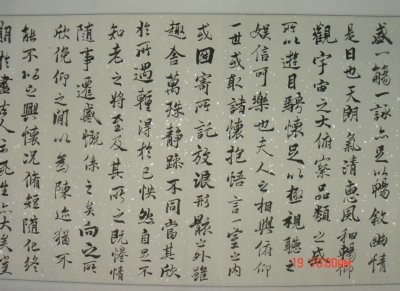 盛一觴一詠亦足以暢敘幽情
是日也天朗氣清惠風和暢仰
觀宇宙之大俯察品類之盛
所以遊目騁懷足以極視聽之
娛信可樂也夫人之相與俯仰
一世或取諸懷抱悟言一室之內
或因寄所託放浪形骸之外雖
趣舍萬殊靜躁不同當其欣
於所遇輒得於己怏然自足不
知老之將至及其所之既惓情
隨事遷感慨係之矣向之所
欣俛仰之間以為陳迹猶不
能不以之興懷況脩短隨化終
期於盡古人云死生亦大矣豈
19